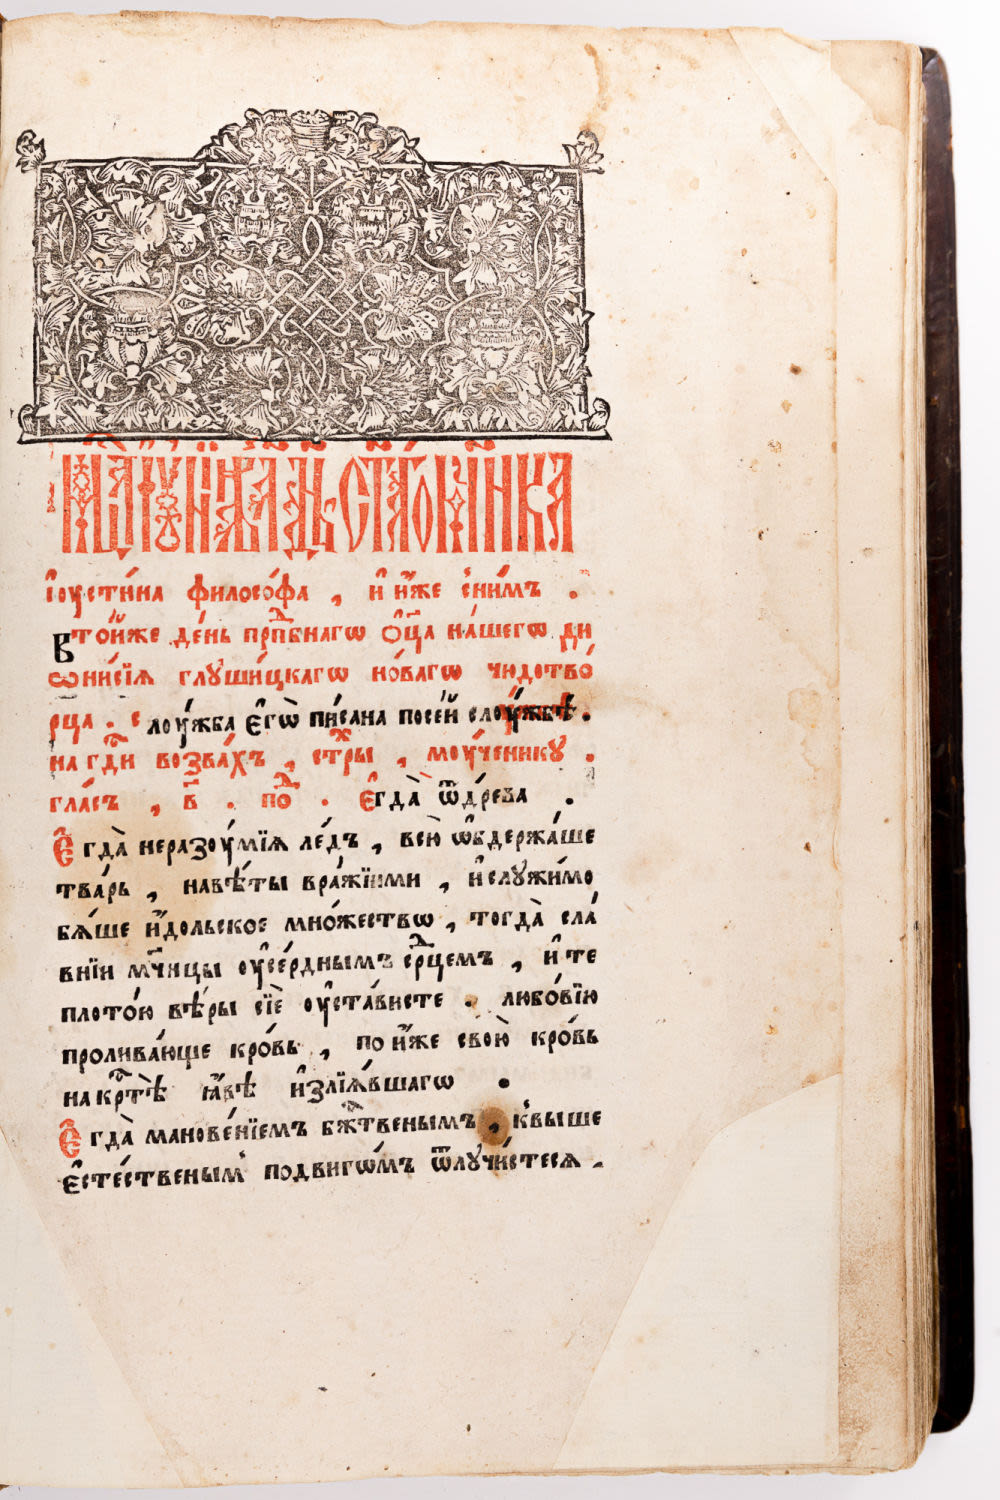 мⷭ҇ца іꙋ́нїа, въ а҃, дн҃ь. ст҃а́гѡ мч҃нка
і҆ѹсти́на филосо́фа , и҆ и҆́же сни́мъ .
Вто́йже де́нь прпⷣбнагѡ ѻ҆ц҃а на́шегѡ ди
ѡни́сїѧ глꙋши́цкагѡ но́вагѡ чюдотво́
рца . слѹ́жба є҆гѡ̀ пи́сана посе́й слѹ́жбѣ .
на гдⷭ҇и возва́хъ , стхⷬ҇ры , мѹ́ченикꙋ .
гла́съ , в҃ . поⷣ . Є҆гда̀ ѿдре́ва .
Є҆гда̀ неразѹ́мїѧ ле́дъ , всю̀ ѡ҆бдержа́ше
тва́рь , навѣ́ты вра́жїими , и҆слꙋжи́мо
бѧ́ше и҆́дольское мно́жествѡ , тогда̀ сла́
внїи мч҃ницы ѹ҆се́рднымъ срⷣцемъ , и҆те
плото́ю вѣ́ры сїѐ ѹ҆ста́висте . любо́вїю
пролива́юще кро́вь , пои҆́же свою̀ кро́вь
накрⷭ҇тѣ̀ ꙗ҆́вѣ и҆злїѧ́вшагѡ .
Є҆гда̀ манове́нїемъ бжⷭ҇твенымъ , к̾выше
є҆сте́ственым̾ подвигѡ́мъ ѿлꙋчи́стесѧ .